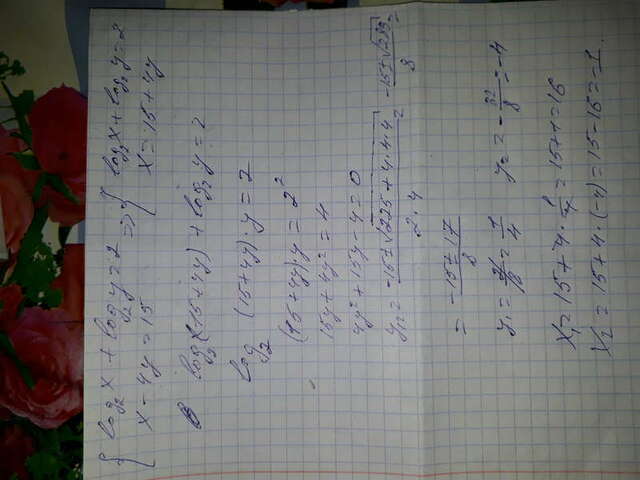 { log₂x + log₂y = 2 => { log₂x + log₂y = 2
x - 4y = 15 x = 15 + 4y
log₂(15+4y) + log₂y = 2
log₂ (15+4y)·y = 2
(15+4y)·y = 2²
15y + 4y² = 4
4y² + 15y - 4 = 0
y₁,₂ = (-15 ± √(225 + 4·4·4))/(2·4) = (-15 ± √289)/8 =
= (-15 ± 17)/8
y₁ = 2/8 = 1/4 y₂ = -32/8 = -4
x₁ = 15 + 4·1/4 = 15 + 1 = 16
x₂ = 15 + 4·(-4) = 15 - 16 = -1.